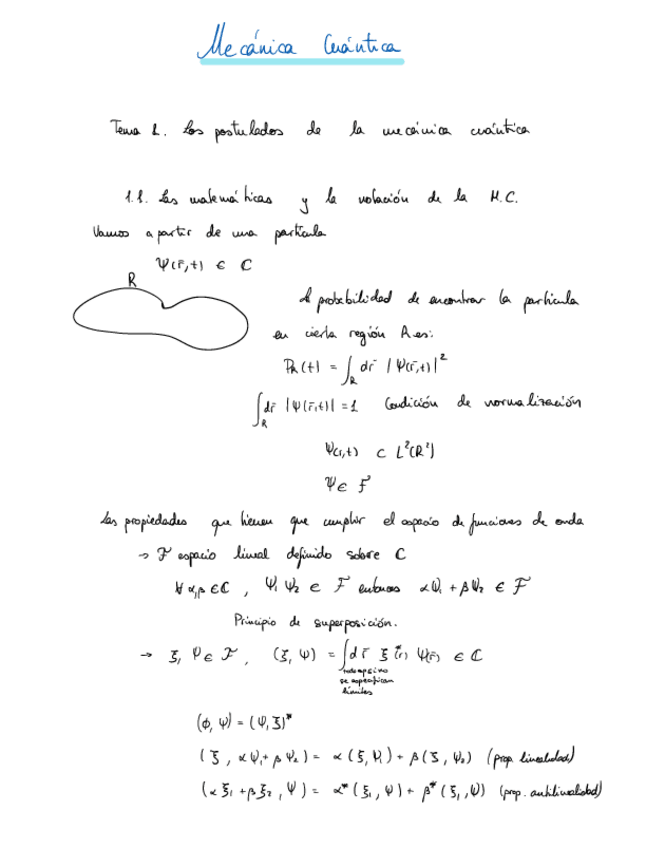 Mecánica Cuántica
Tema 1. Los postulados de la mecánica cuántica
1.1. Las matemáticas y la notación de la M.C.
Vamos a partir de una partícula
Ψ(r̄,t) ∈ ℂ
R
La probabilidad de encontrar la partícula
en cierta región R es:
P_R(t) = ∫_R dr̄ |Ψ(r̄,t)|²
∫_R dr̄ |Ψ(r̄,t)| = 1 Condición de normalización
Ψ(r,t) ⊂ L²(R²)
Ψ ∈ F
Las propiedades que tienen que cumplir el espacio de funciones de onda
→ F espacio lineal definido sobre ℂ
∀ α,β ∈ ℂ , Ψ₁ Ψ₂ ∈ F entonces αΨ₁ + βΨ₂ ∈ F
Principio de superposición.
→ ξ, Ψ ∈ F, (ξ, Ψ) = ∫ dr̄ ξ*(r) Ψ(r̄) ∈ ℂ
se especifican
límites
(ϕ, Ψ) = (Ψ, ξ)*
(ξ, αΨ₁ + βΨ₂) = α(ξ, Ψ₁) + β(ξ, Ψ₂) (prop. linealidad)
(αξ₁ + βξ₂, Ψ) = α*(ξ₁, Ψ) + β*(ξ₁, Ψ) (prop. antilinealidad)